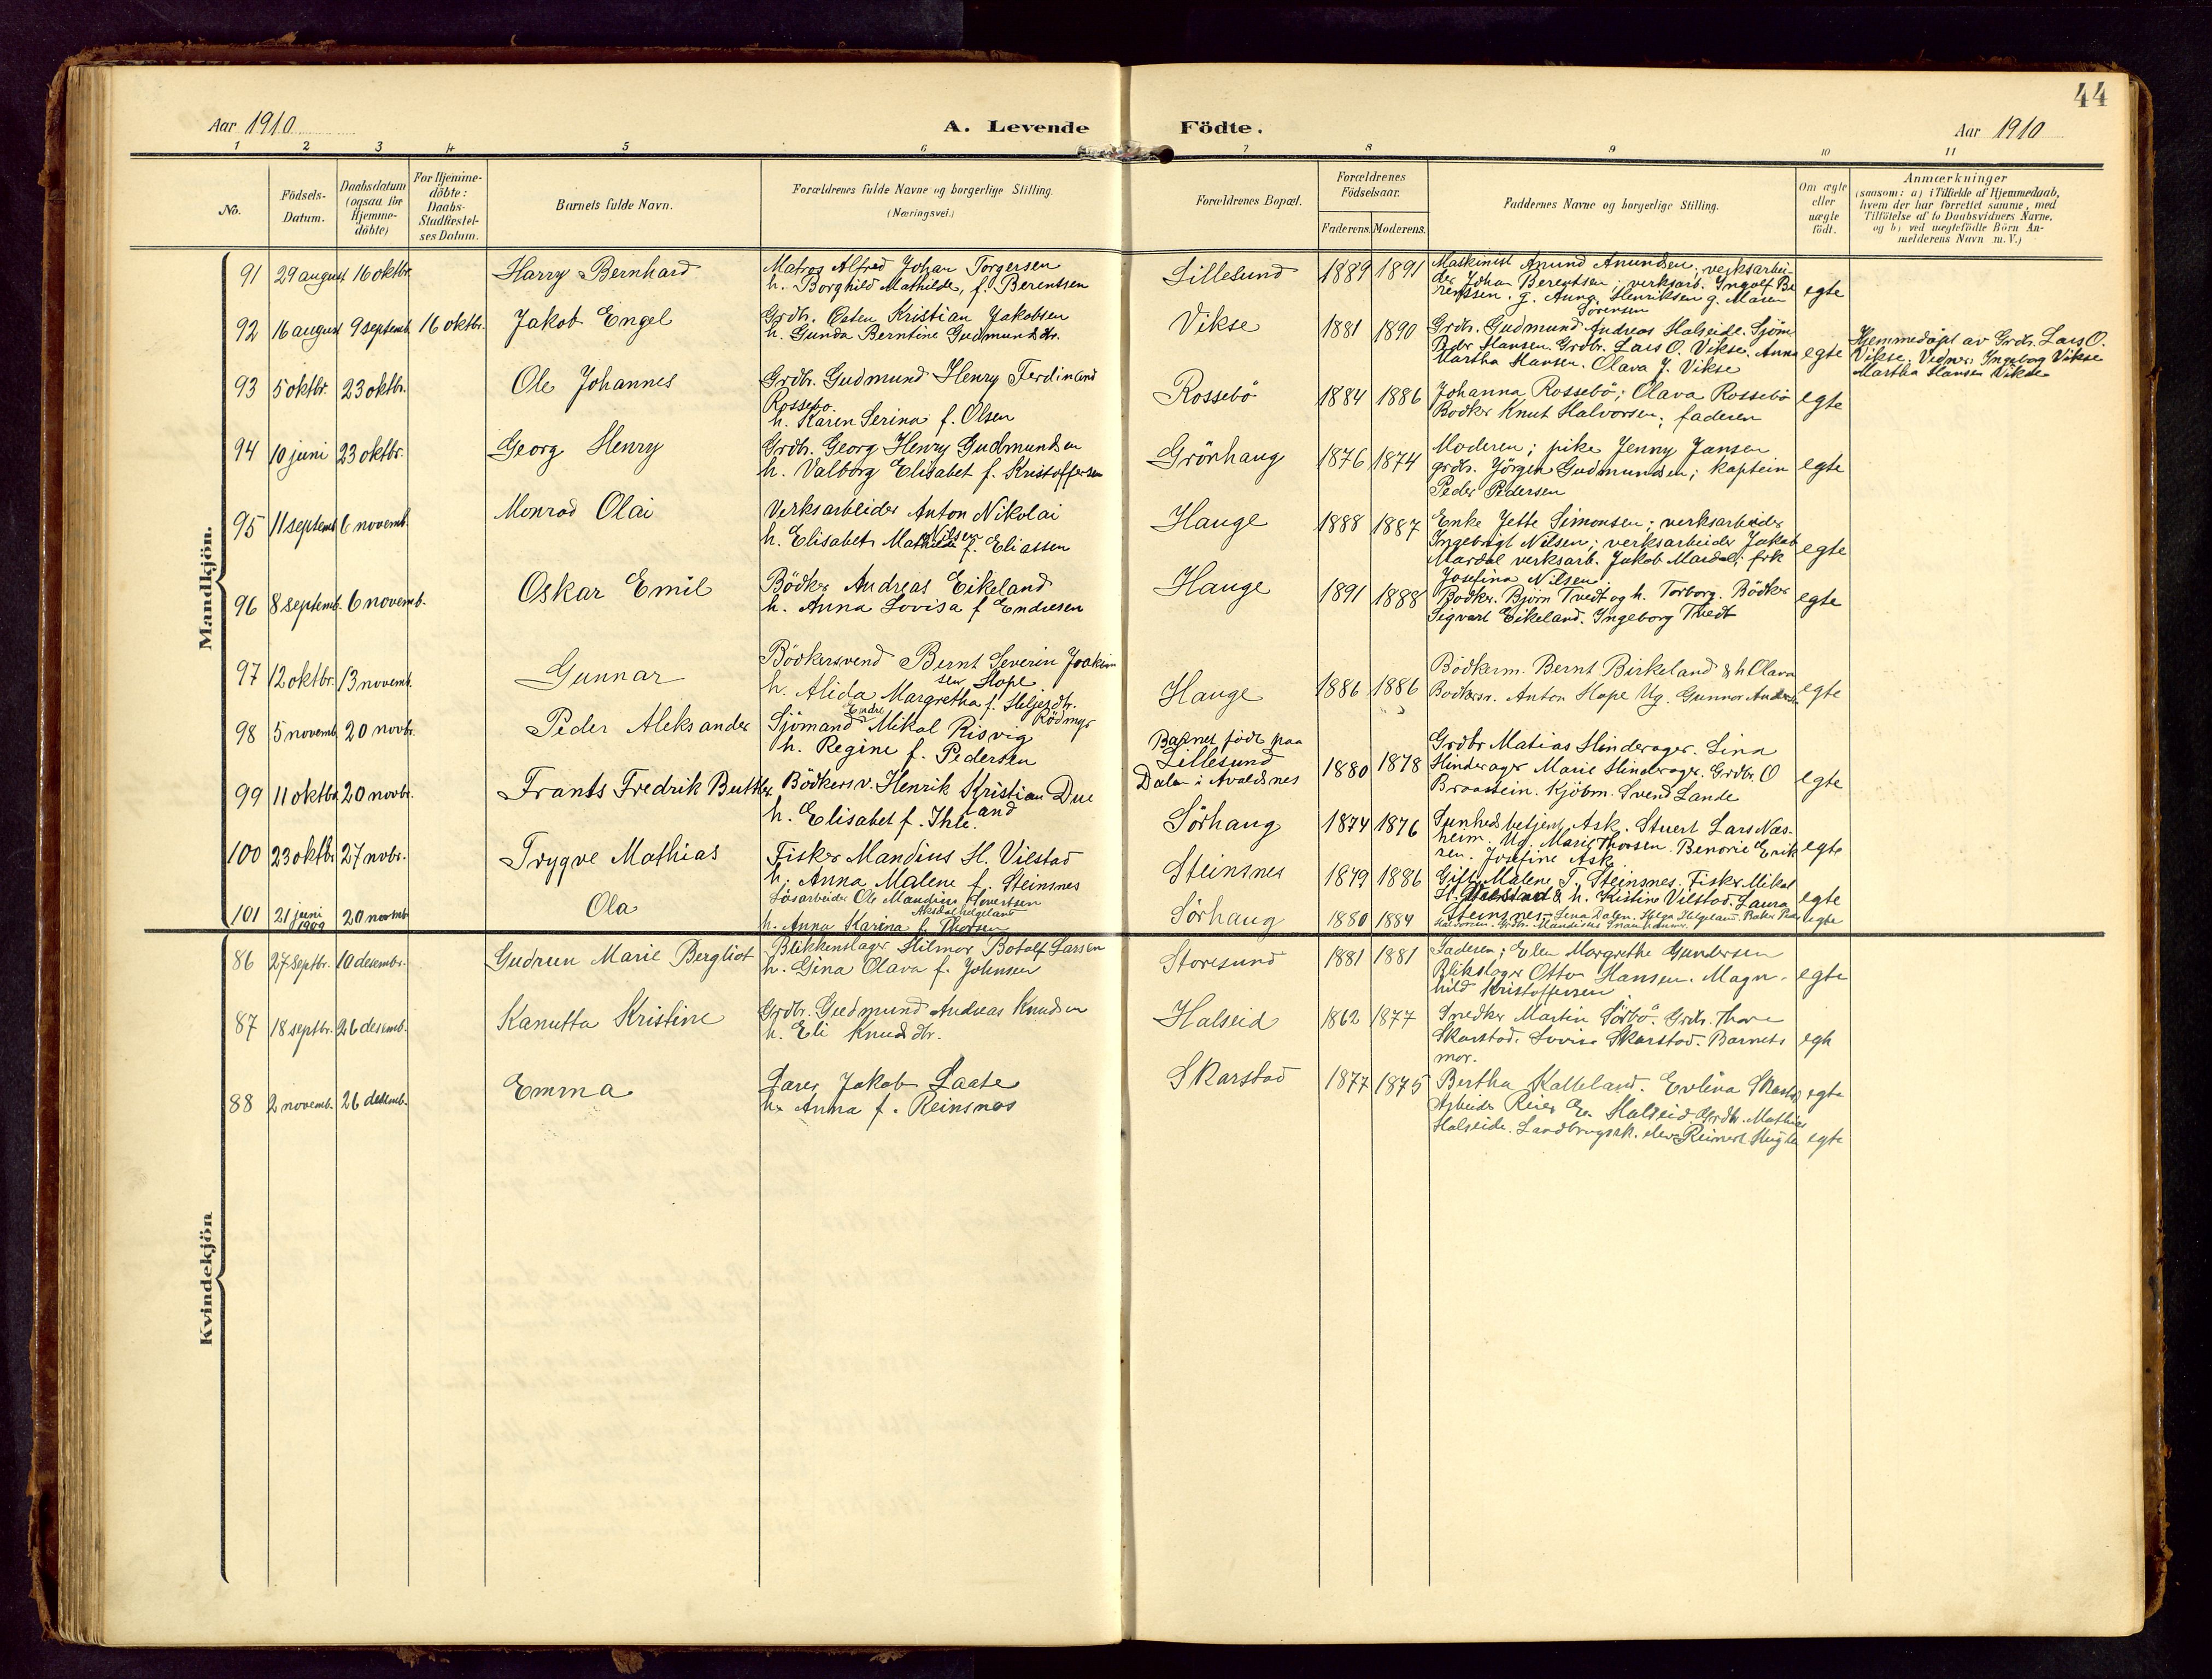 44
Aar 1910
A. Levende Födte.
Aar 1910
1 2 3 4 5 6 7 8 9 10 11
No.
Födsels-
Datum.
Daabsdatum
(ogsaa for
Hjemme-
döbte)
For Hjemme-
döbte:
Daabs-
Stadfæstel-
ses Datum.
Barnets fulde Navn.
Forældrenes fulde Navne og borgerlige Stilling.
(Næringsvei.)
Forældrenes Bopæl.
Forældrenes
Födselsaar.
Faderens. Moderens.
Faddernes Navne og borgerlige Stilling.
Om ægte
eller
uægte
födt.
Anmærkninger
(saasom: a) i Tilfælde af Hjemmedaab,
hvem der har forrettet samme, med
Tilföielse af to Daabsvidners Navne,
og b) ved uægtefödte Börn An-
melderens Navn m. V.)
Mandkjön.
91 29 august 16 oktbr. Harry Bernhard
Matros Alfred Johan Torgersen
h. Borghild Mathilde, f. Berentsen
Lillesund 1889 1891
Maskinist Anund Anundsen; verksarbei-
der Johan Berentsen; verksarb. Ingolf Be
rentsen. g. Anna Henriksen g. Maren
Sörensen
egte
92 16 august 9 septemb. 16 oktbr. Jakob Engel
Grdbr. Osten Kristian Jakobsen
h. Gunda Berntine Gudmundsdtr.
Vikse 1881 1890
Grdbr. Gudmund Andreas Halseide. Sjöm
Peder Hansen. Grdbr. Lars O. Vikse. Anna
Martha Hansen. Olava J. Vikse
egte
Hjemmedöpt av Grdbr. Lars O.
Vikse. Vidner: Ingeborg Vikse
Martha Hansen Vikse
93 5 oktbr. 23 oktbr. Ole Johannes
Grdbr. Gudmund Henry Ferdinand
Rossebö.
h. Karen Serina f. Olsen
Rossebö 1884 1886
Johanna Rossebö; Olava Rossebö
Bödker Knut Halvorsen; faderen
egte
94 10 juni 23 oktbr. Georg Henry
Grdb. Georg Henry Gudmundsen
h. Valborg Elisabet f. Kristoffersen
Grönhaug 1876 1874
Moderen; pike Jenny Jansen
grdbr. Jörgen Gudmundsen; kaptein
Peder Pedersen
egte
95 11 septemb 6 novemb. Monrad Olai
Verksarbeider Anton Nikolai
Nilsen
h. Elisabet Mathilde f. Eliassen
Hauge 1888 1887
Enke Jette Simonsen; verksarbeider
Ingebrigt Nilsen; verksarbeider Jakob
Mardal verksarb. Jakob Mardal; frk
Josefina Nilsen.
egte
96 8 septemb. 6 novemb. Oskar Emil
Bödker Andreas Eikeland
h. Anna Lovisa f Endresen
Hauge 1891 1888
Bödker. Björn Tvedt og h. Torborg. Bödker
Sigvart Eikeland. Ingeborg Tvedt
egte
97 12 oktbr. 13 novemb. Gunnar
Bödkersvend Bernt Severin Joakim
sen Hope
h. Alida Margretha f. Heljesdtr.
Rödmyr
Hauge 1886 1886
Bödkerm. Bernt Birkeland & h Olava
Bödkersv. Anton Hope Ug. Gunnar Andersen
egte
98 5 novemb. 20 novbr. Peder Aleksander
Endre
Sjömand Mikal Risvig
h. Regine f. Pedersen
Barnet födt paa
Lillesund
Dalen i Avaldsnes
1880 1878
Grdbr Matias Hinderager. Lina
Hinderager Marie Hinderager. Grdbr. O
Braastein. Kjöbm. Svend Lande
egte
99 11 oktbr. 20 novbr. Frants Fredrik Buttler
Bödkersv. Henrik Kristian Due
land
h. Elisabet f. Ihle.
Sörhaug 1874 1876
Sunhedsbetjent Ask. Stuert Lars Næs-
heim. Ug. Marie Thorsen. Benorie Erik
sen. Josefine Ask
egte
100 23 oktbr 27 novbr. Trygve Mathias
Fisker Mandius H. Vilstad
h. Anna Malene f. Steinsnes
Steinsnes 1879 1886
Gift Malene T. Steinsnes. Fisker Mikal
H. & h. Kistine Vilstad. Laura
Steinsnes
egte
101 21 juni 1909 20 novemb Ola
Lösarbeider Ole Mandius Sivertsen
Aksdal helgeland
h. Anna Karina f. Thorsen
Sörhaug 1880 1884
Lina Dalen. Helga Helgeland. Baker Peder
Halvorsen. Grdbr. Mandius
egte
Kvindekjön
86 27 septbr. 10 desembr. Gudrun Marie Bergliot
Blikkenslager Hilmar Botolf Larsen
h. Gina Olava f. Johnsen
Storesund 1881 1881
Faderen; Elen Margrethe Gundersen
Blikslager Otto Hansen. Magn-
hild Kristoffersen
egte
87 18 septbr. 26 desemb. Kanutta Kristine
Grdbr. Gudmund Andreas Knudsen
h. Eli Knudsdtr.
Halseid 1862 1877
Snedker Martin Sörbö. Grdbr. Thore
Skarstad. Lovise Skarstad. Barnets
mor.
egte
88 2 novemb. 26 desemb. Emma
Lærer Jakob Laate
h. Anna f. Reinsnos
Skarstad 1877 1875
Bertha Kalleland. Evelina Skarstad
Arbeider Reier Halseid Grdbr. Mathias
Halseide. Landbrugssk. elev Reinert
egte
egte